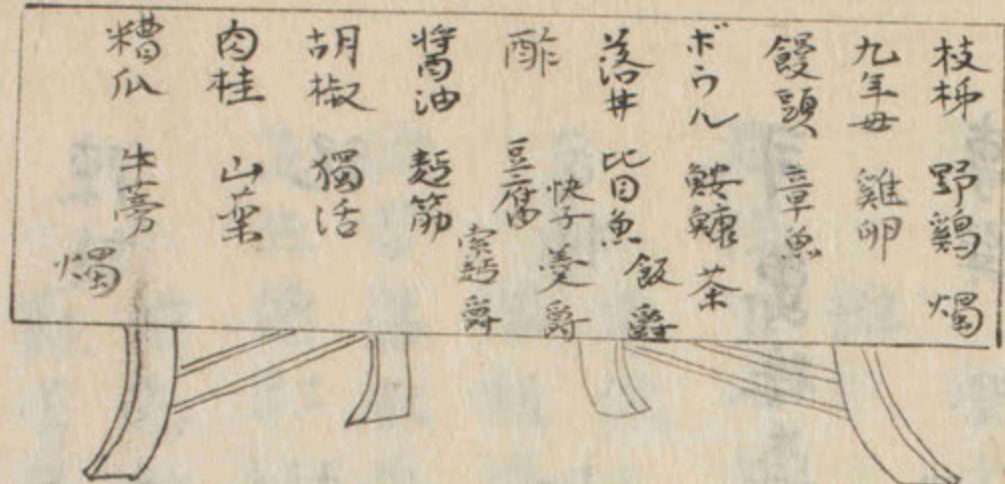 枝柹 野鷄 燭
九年母 雞卵
饅頭 章魚
ボウル 鮟鱇 茶
落井 比目魚 飯 爵
酢 豆腐 快子 羹 爵
醬油 麪筋 索麪 爵
胡椒 獨活
肉桂 山葉
糟瓜 牛蒡 燭